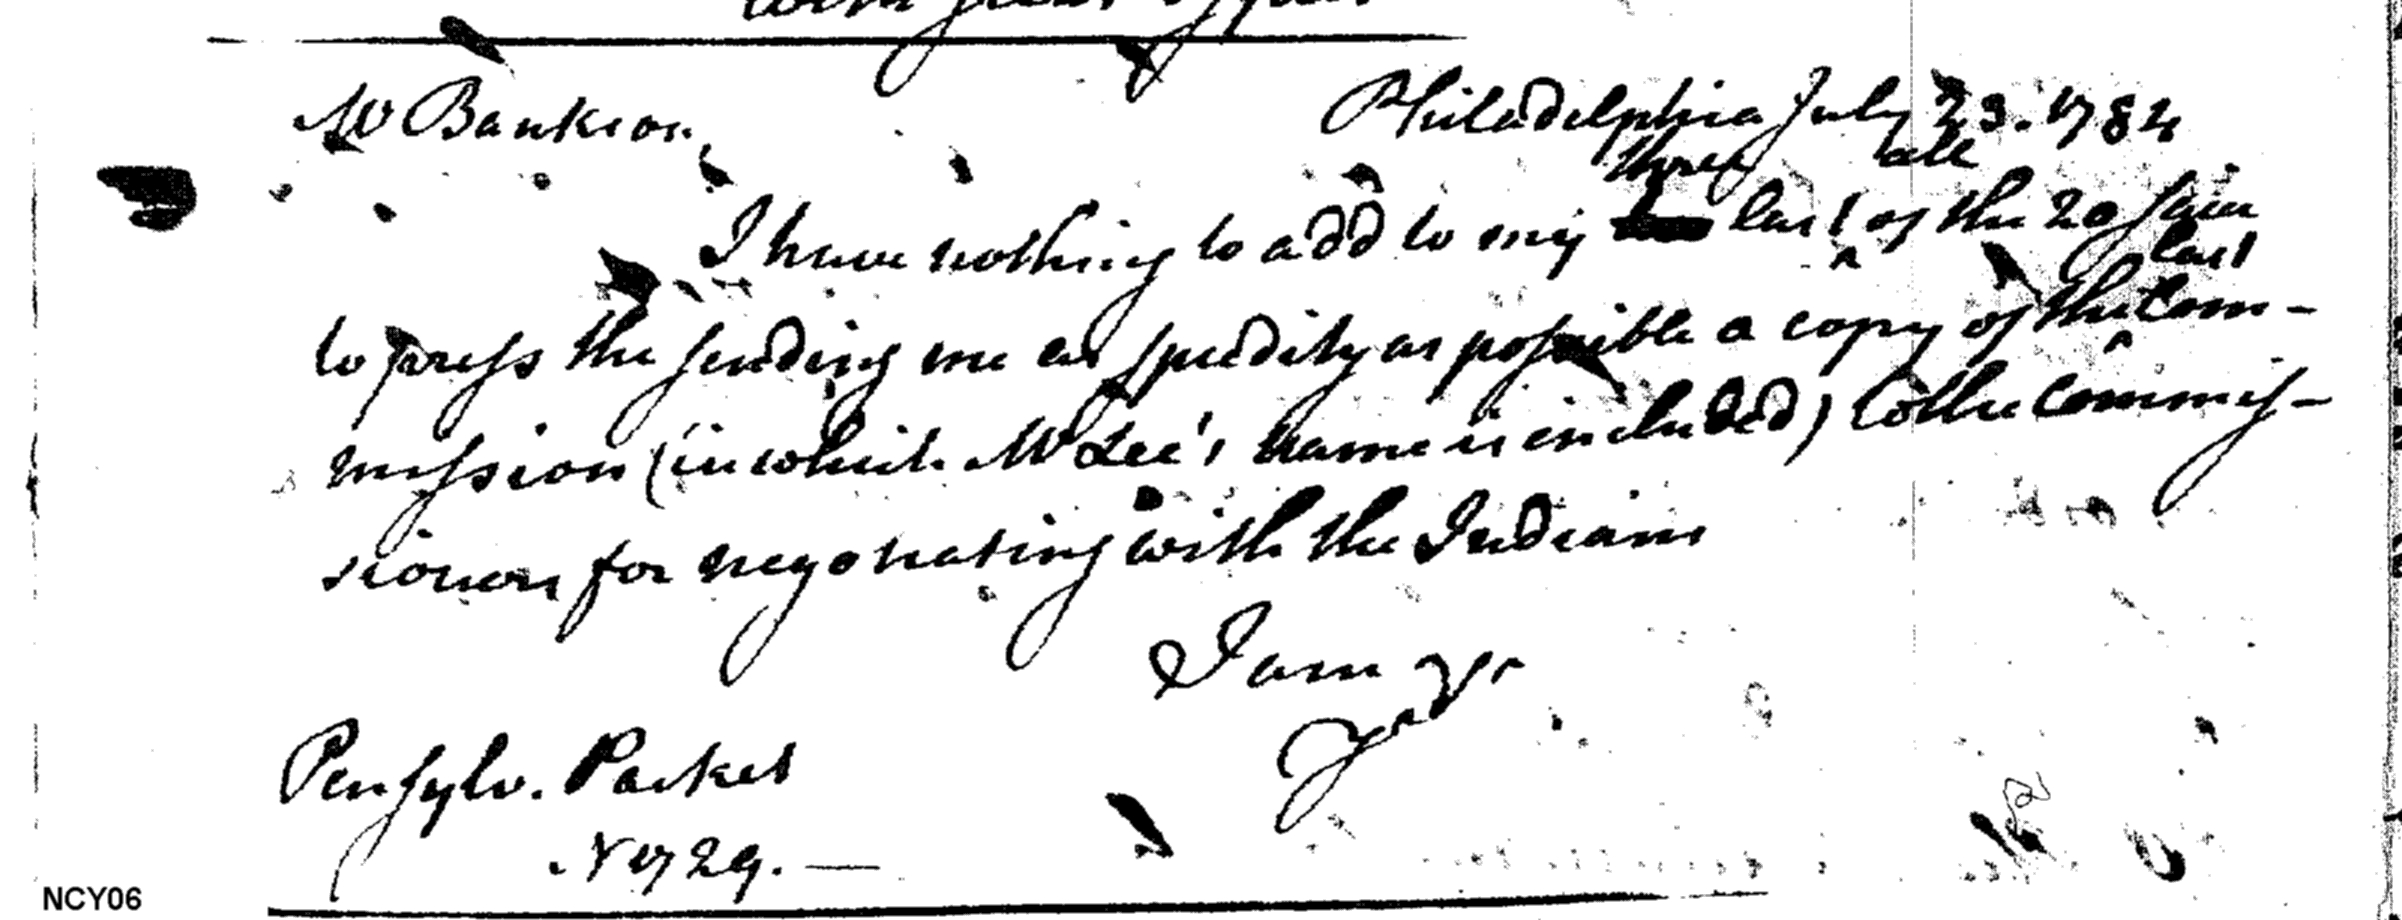 with great respect
Mr Bankson, Philadelphia July 23. 1784
three
I have nothing to add to my last of the 20 save
last
to press the sending me as speedily as possible a copy of the Com-
mission (in which Mr Lee's name is included) to the commis-
sioners for negotiating with the Indians
I am yr
Pensylv. Packet
N 1729. —
NCY06